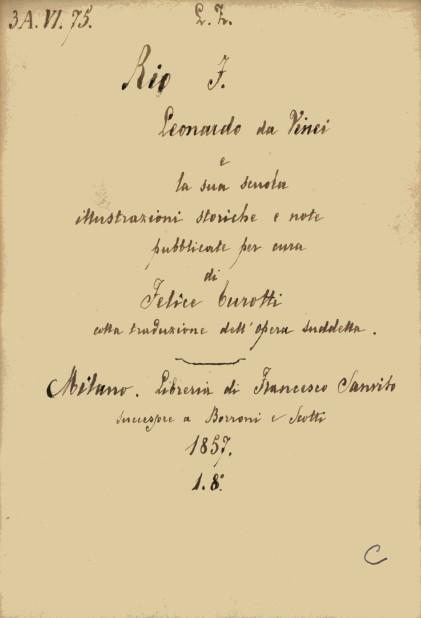 3A.VI.75.
L. F.
Rio F.
Leonardo da Vinci
e
la sua scuola
illustrazioni storiche e note
pubblicate per cura
di
Felice Turotti
colla traduzione dell'opera suddetta.
Milano. Libreria di Francesco Sanvito
successore a Borroni e Scotti
1857.
1.8°
C